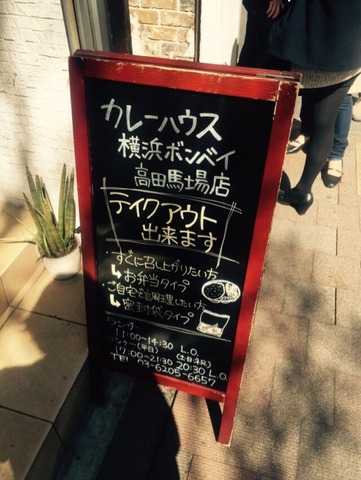 カレーハウス
横浜ボンベイ
高田馬場店
テイクアウト
出来ます
・すぐに召し上がりたい方
↳お弁当タイプ
・ご自宅で調理したい方
↳密封袋タイプ
ランチ
11:00~14:30 L.O.
ディナー(平日) (土日祝)
17:00~21:30 20:30 L.O.
TEL 03-6205-6657